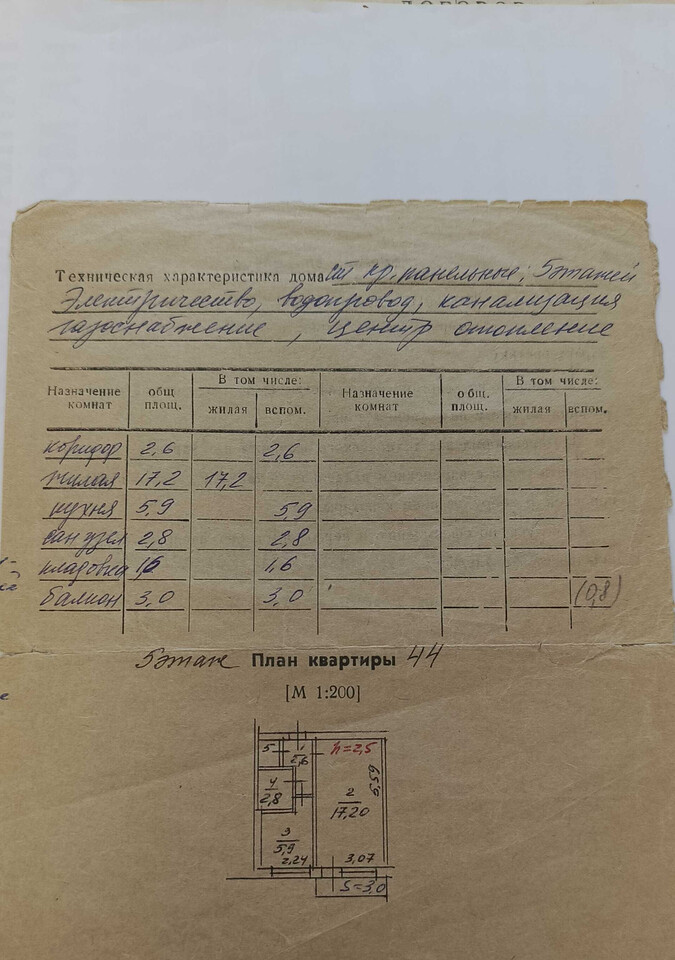 Техническая характеристика дома ст кр. панельные; 5 этажей
Электричество, водопровод, канализация
газоснабжение, центр отопление
Назначение комнат общ. площ. В том числе: жилая вспом. Назначение комнат общ. площ. В том числе: жилая вспом.
коридор 2,6 2,6
жилая 17,2 17,2
кухня 5,9 5,9
сан узел 2,8 2,8
кладовка 1,6 1,6
балкон 3,0 3,0 (0,8)
5 этаж План квартиры 44
[М 1:200]
5 1 2,6 h=2,5
4 2,8 2 17,20 5,59
3 5,9
2,24 3,07
S=3,0